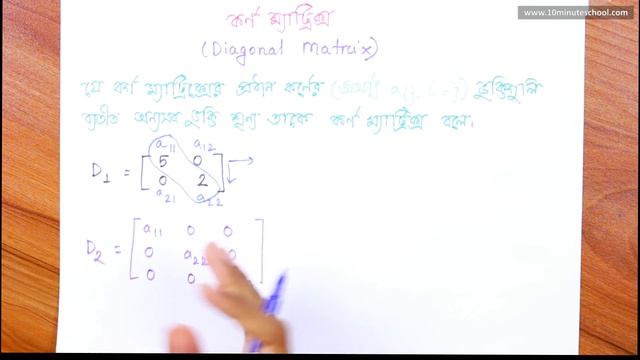 www.10minuteschool.com
কর্ণ ম্যাট্রিক্স
(Diagonal Matrix)
যে বর্গ ম্যাট্রিক্সের প্রধান কর্ণের (অর্থাৎ aij, i=j) ভুক্তিগুলি
ব্যতীত অন্যসব ভুক্তি শূন্য তাকে কর্ণ ম্যাট্রিক্স বলে।
a11 a12
D1 = [ 5 0
0 2 ]
a21 a22
[ a11 0 0
D2 = 0 a22 0
0 0 ]